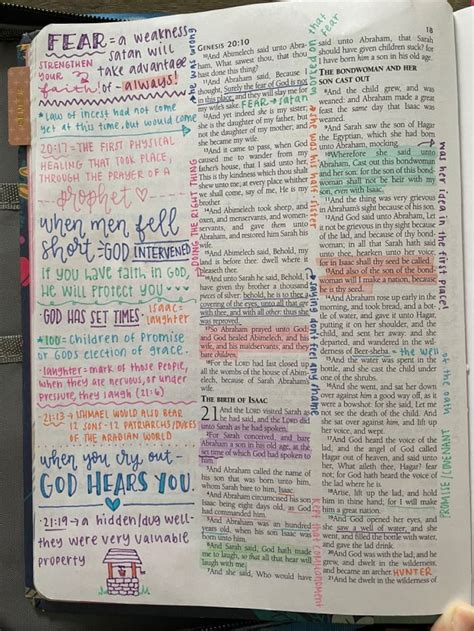 FEAR = a weakness
satan will take advantage
of - always!
STRENGTHEN
YOUR
faith!
*law of incest had not come
yet at this time, but would come
20:17 = THE FIRST PHYSICAL
HEALING THAT TOOK PLACE
THROUGH THE PRAYER OF A
prophet
when men fell
short - GOD INTERVENED
if you have faith in GOD,
He will PROTECT you
GOD HAS SET TIMES
Isaac =
laughter
*100 = CHILDREN OF PROMISE
OR GODS ELECTION OF GRACE.
laughter = mark of those people,
when they are nervous, or under
pressure, they laugh (21:6)
21:13 → ISHMAEL WOULD ALSO BEAR
12 SONS - 12 PATRIARCHS/DUKES
OF THE ARABIAN WORLD
when you cry out -
GOD HEARS YOU.
21:19 → a hidden/dug well -
they were very valuable
property
he was wrong
DOING THE RIGHT THING
GENESIS 20:10
18
10And Abimelech said unto Abraham,
What sawest thou, that thou
hast done this thing?
11And Abraham said, Because I
thought, Surely the fear of God is not
in this place; and they will slay me for
my wife's sake.
FEAR → satan
12And yet indeed she is my sister;
she is the daughter of my father, but
not the daughter of my mother; and
she became my wife.
13And it came to pass, when God
caused me to wander from my
father's house, that I said unto her,
This is thy kindness which thou shalt
shew unto me; at every place whither
we shall come, say of me, He is my
brother.
14And Abimelech took sheep, and
oxen, and menservants, and womenservants,
and gave them unto
Abraham, and restored him Sarah
his wife.
15And Abimelech said, Behold, my
land is before thee: dwell where it
pleaseth thee.
16And unto Sarah he said, Behold, I
have given thy brother a thousand
pieces of silver: behold, he is to thee a
covering of the eyes, unto all that are
with thee, and with all other: thus she
was reproved.
17So Abraham prayed unto God:
and God healed Abimelech, and his
wife, and his maidservants; and they
bare children.
18For the LORD had fast closed up
all the wombs of the house of Abimelech,
because of Sarah Abraham's
wife.
THE BIRTH OF ISAAC
21 And the LORD visited Sarah as
he had said, and the LORD did
unto Sarah as he had spoken.
2For Sarah conceived, and bare
Abraham a son in his old age, at the
set time of which God had spoken to
him.
3And Abraham called the name of
his son that was born unto him,
whom Sarah bare to him, Isaac.
4And Abraham circumcised his son
Isaac being eight days old, as God
had commanded him.
5And Abraham was an hundred
years old, when his son Isaac was
born unto him.
6And Sarah said, God hath made
me to laugh, so that all that hear will
laugh with me.
7And she said, Who would have
she was his half sister
saying don't feel any shame
KEPT that commandment
said unto Abraham, that Sarah
should have given children suck? for
I have born him a son in his old age.
THE BONDWOMAN AND HER
SON CAST OUT
8And the child grew, and was
weaned: and Abraham made a great
feast the same day that Isaac was
weaned.
9And Sarah saw the son of Hagar
the Egyptian, which she had born
unto Abraham, mocking.
10Wherefore she said unto Abraham,
Cast out this bondwoman
and her son: for the son of this bondwoman
shall not be heir with my
son, even with Isaac.
11And the thing was very grievous
in Abraham's sight because of his son.
12And God said unto Abraham, Let
it not be grievous in thy sight because
of the lad, and because of thy bondwoman;
in all that Sarah hath said
unto thee, hearken unto her voice;
for in Isaac shall thy seed be called.
13And also of the son of the bondwoman
will I make a nation, because he
is thy seed.
14And Abraham rose up early in the
morning, and took bread, and a bottle
of water, and gave it unto Hagar,
putting it on her shoulder, and the
child, and sent her away: and she
departed, and wandered in the wilderness
of Beer-sheba.
15And the water was spent in the
bottle, and she cast the child under
one of the shrubs.
16And she went, and sat her down
over against him a good way off, as it
were a bowshot: for she said, Let me
not see the death of the child. And she
sat over against him, and lift up
her voice, and wept.
17And God heard the voice of the
lad; and the angel of God called
Hagar out of heaven, and said unto
her, What aileth thee, Hagar? fear
not; for God hath heard the voice of
the lad where he is.
18Arise, lift up the lad, and hold
him in thine hand; for I will make
him a great nation.
19And God opened her eyes, and
she saw a well of water; and she
went, and filled the bottle with water,
and gave the lad drink.
20And God was with the lad; and he
grew, and dwelt in the wilderness,
and became an archer.
HUNTER
21And he dwelt in the wilderness of
was her idea in the first place!
the well
of the oath
PROMISE/COVENANT